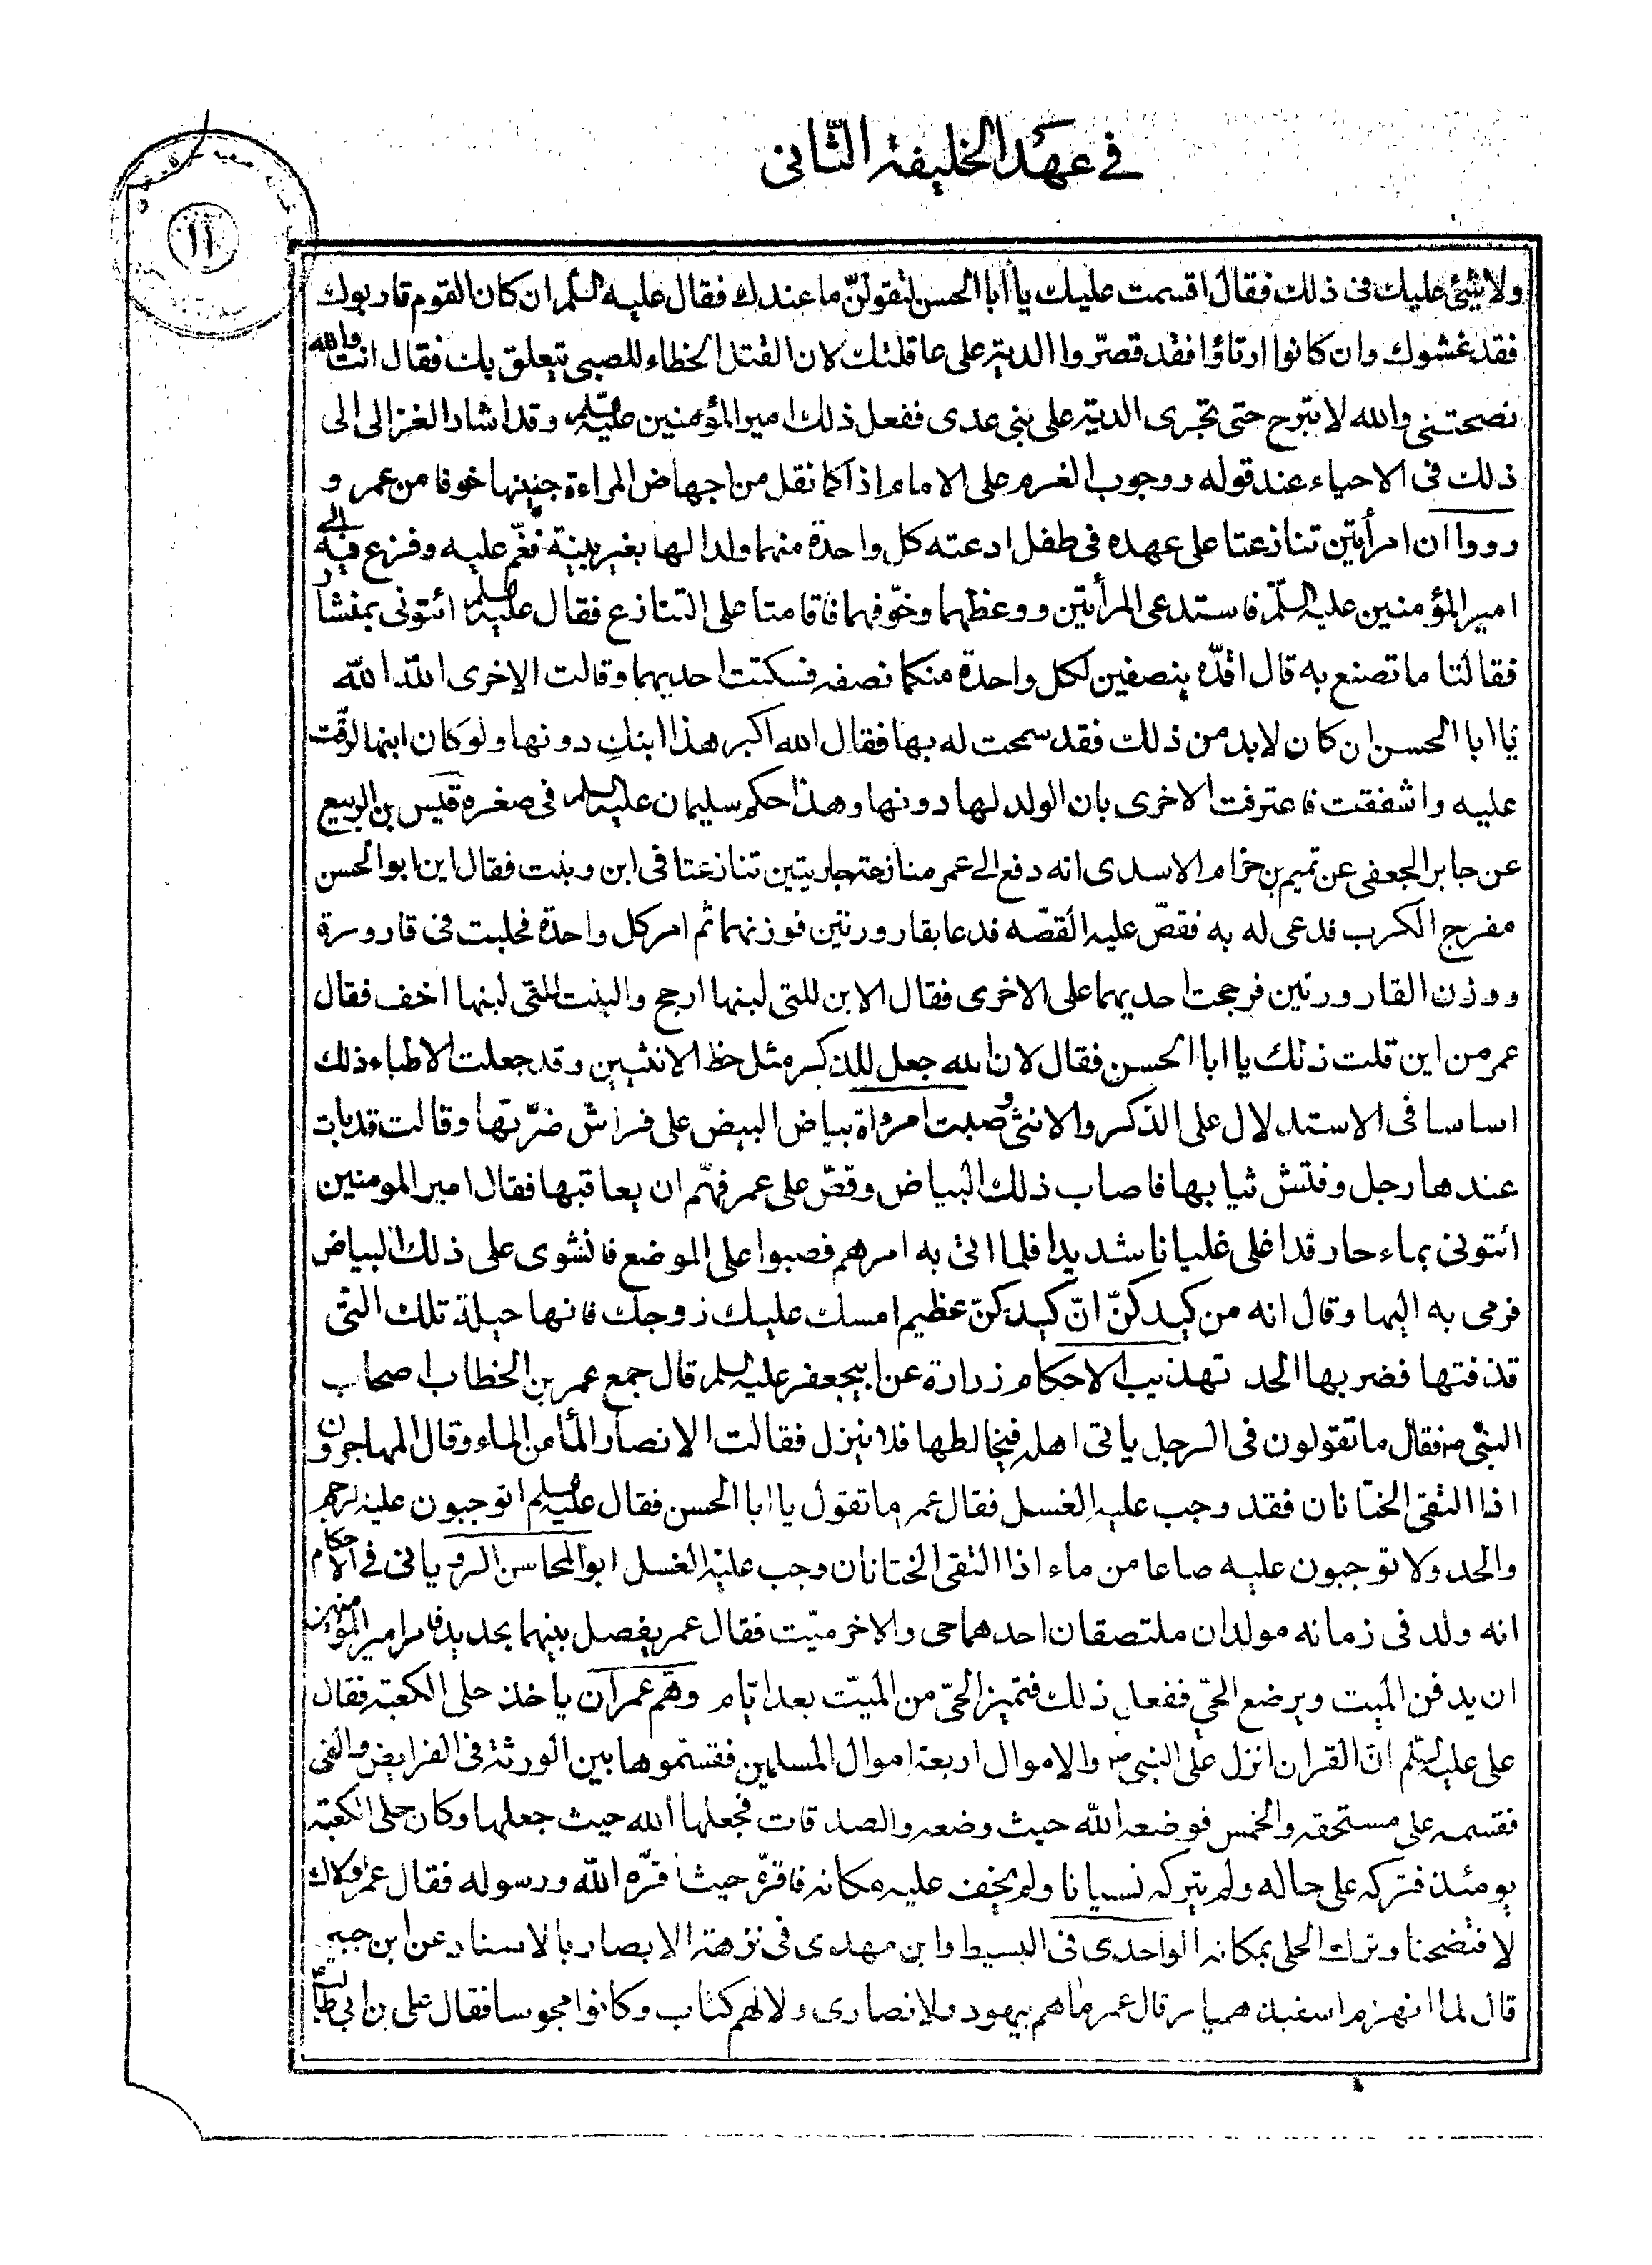 في عهد الخليفة الثاني
ولا شئ عليك فى ذلك فقال اقسمت عليك يا ابا الحسن لتقولنّ ما عندك فقال عليه السلم ان كان القوم قاربوك
فقد غشوك وان كانوا ارتاؤا فقد قصّروا الدية على عاقلتك لان القتل الخطاء للصبى يتعلق بك فقال انت والله
نصحتنى والله لا تبرح حتى تجرى الدية على بنى عدى ففعل ذلك امير المؤمنين عليه السلم وقد اشار الغزالى الى
ذلك فى الاحياء عند قوله ووجوب الغرم على الامام اذا كما نقل من اجهاض المراءة جنينها خوفا من عمر و
رووا ان امرأتين تنازعتا على عهده فى طفل ادعته كل واحدة منهما ولدا لها بغير بينة فغمّ عليه وفزع فيه الى
امير المؤمنين عليه السلم فاستدعى المرأتين ووعظهما وخوّفهما فاقامتا على التنازع فقال عليه السلم ائتونى بمنشار
فقالتا ما تصنع به قال اقدّه بنصفين لكل واحدة منكما نصفه فسكتت احديهما وقالت الاخرى الله الله
يا ابا الحسن ان كان لا بد من ذلك فقد سمحت له بها فقال الله اكبر هذا ابنكِ دونها ولو كان ابنها لرقّت
عليه واشفقت فاعترفت الاخرى بان الولد لها دونها وهذا حكم سليمان عليه السلم فى صغره قيس بن الربيع
عن جابر الجعفى عن تميم بن حزام الاسدى انه دفع الى عمر منازعة جاريتين تنازعتا فى ابن وبنت فقال اين ابو الحسن
مفرج الكرب فدعى له به فقصّ عليه القصّه فدعا بقارورتين فوزنهما ثم امر كل واحدة فحلبت فى قارورة
ووزن القارورتين فرجحت احديهما على الاخرى فقال الابن للتى لبنها ارجح والبنت للتى لبنها اخف فقال
عمر من اين قلت ذلك يا ابا الحسن فقال لان الله جعل للذكر مثل حظ الانثيين وقد جعلت الاطباء ذلك
اساسا فى الاستدلال على الذكر والانثى وصبت امرداة بياض البيض على فراش ضرّتها وقالت قد بات
عندها رجل وفتش ثيابها فاصاب ذلك البياض وقصّ على عمر فهّم ان يعاقبها فقال امير المومنين
ائتونى بماء حار قد اغلى غليانا شديدا فلما اتى به امرهم فصبوا على الموضع فانشوى على ذلك البياض
فرمى به اليها وقال انه من كيدكنّ انّ كيدكنّ عظيم امسك عليك زوجك فانها حيلة تلك التى
قذفتها فضربها الحد تهذيب الاحكام زرارة عن ابيجعفر عليه السلم قال جمع عمر بن الخطاب اصحاب
النبى ص فقال ما تقولون فى الرجل ياتى اهله فيخالطها فلا ينزل فقالت الانصار الماء من الماء وقال المهاجرون
اذا التقى الختانان فقد وجب عليه الغسل فقال عمر ما تقول يا ابا الحسن فقال عليه السلم اتوجبون عليه الرجم
والحد ولا توجبون عليه صاعا من ماء اذا التقى الختانان وجب عليه الغسل ابو المحاسن الرويانى فى الاحكام
انه ولد فى زمانه مولدان ملتصقان احدهما حى والاخر ميّت فقال عمر يفصل بينهما بحديد فامر امير المؤمنين
ان يدفن الميت ويرضع الحىّ ففعل ذلك فتميز الحىّ من الميّت بعد ايّام وهّم عمر ان ياخذ حلى الكعبة فقال
على عليه السلم انّ القران انزل على النبى ص والاموال اربعة اموال المسلمين فقسّموها بين الورثة فى الفرايض والفى
فقسمه على مستحقه والخمس فوضعه الله حيث وضعه والصدقات فجعلها الله حيث جعلها وكان حلى الكعبة
يومئذ فتركه على حاله ولم يتركه نسيانا ولم يخف عليه مكانه فاقرّه حيث اقرّه الله ورسوله فقال عمر لولاك
لافتضحنا وترك الحلى بمكانه الواحدى فى البسيط وابن مهدى فى نزهة الابصار بالاسناد عن ابن جبير
قال لما انهزم اسفيذ هميار قال عمر ما هم بيهود ولا نصارى ولا لهم كتاب وكانوا مجوسا فقال على بن ابى طالب